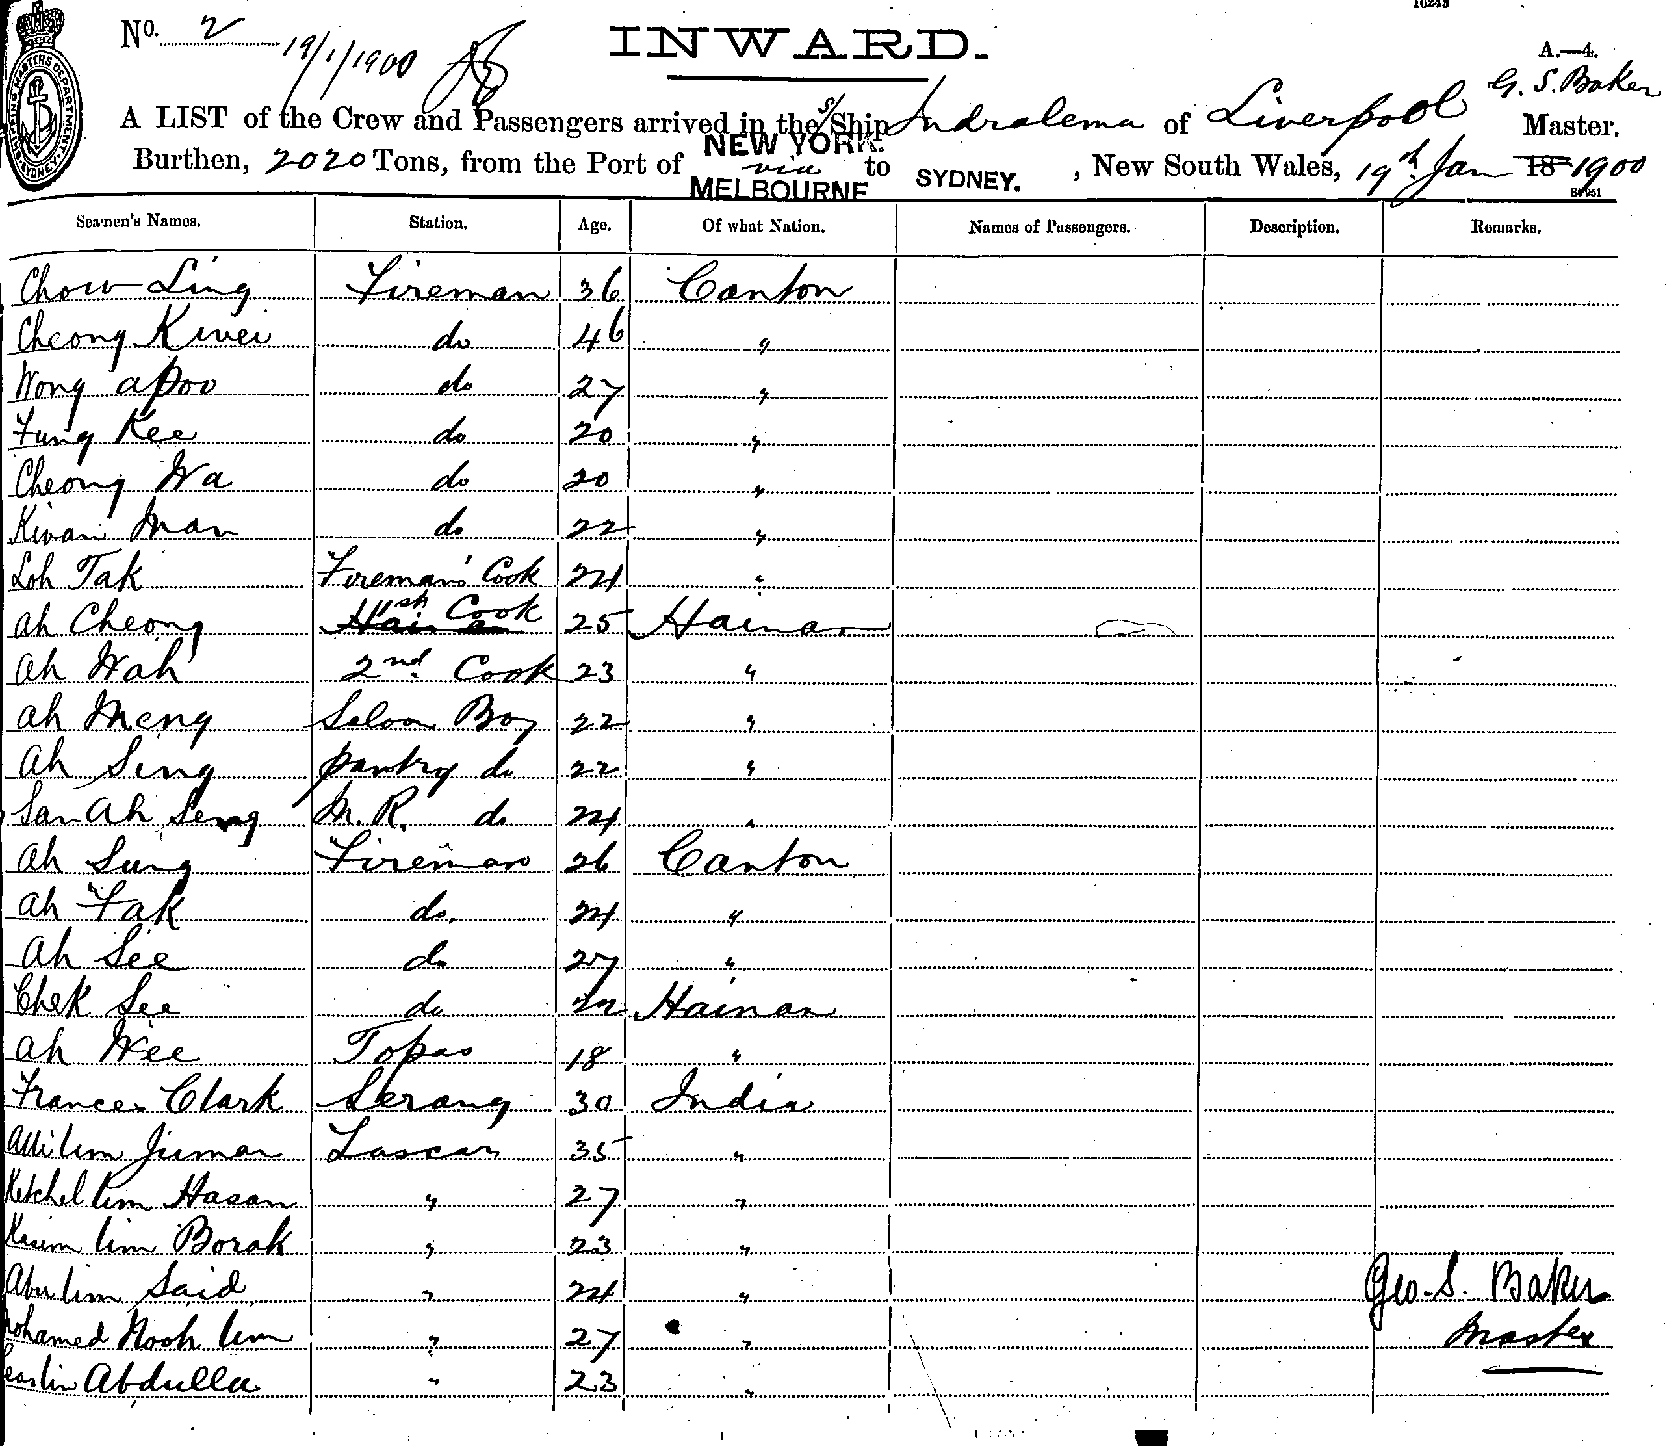 10243
No. 2 19/1/1900
INWARD.
A.—4.
G. S. Baker
A LIST of the Crew and Passengers arrived in the S/Ship Indralema of Liverpool Master.
NEW YORK.
Burthen, 2020 Tons, from the Port of via to SYDNEY. , New South Wales, 19th Jan 18 1900
MELBOURNE
Seamen's Names. Station. Age. Of what Nation. Names of Passengers. Description. Remarks.
Chow Ling Fireman 36 Canton
Cheong Kwei do 46 "
Wong apoo do 27 "
Fung Kee do 20 "
Cheong Wa do 20 "
Kwan Man do 22 "
Loh Tak Fireman's Cook 24 "
ah Cheong Hainan Cook 25 Hainan
ah Wah 2nd Cook 23 "
ah Meng Saloon Boy 22 "
ah Sing pantry do 22 "
San Ah Seng M. R. do 24 "
ah Sung Fireman 26 Canton
ah Fak do. 24 "
ah See do 27 "
Chek See do 22 Hainan
ah Wee Topas 18 "
Frances Clark Serang 30 India
bin Juman Lascar 35 "
Ketchel bin Hasan " 27 "
Kasim bin Borak " 23 "
Abu bin Said " 24 "
Mohamed Nooh bin " 27 "
Abdulla " 23 "
Geo. S. Baker
Master